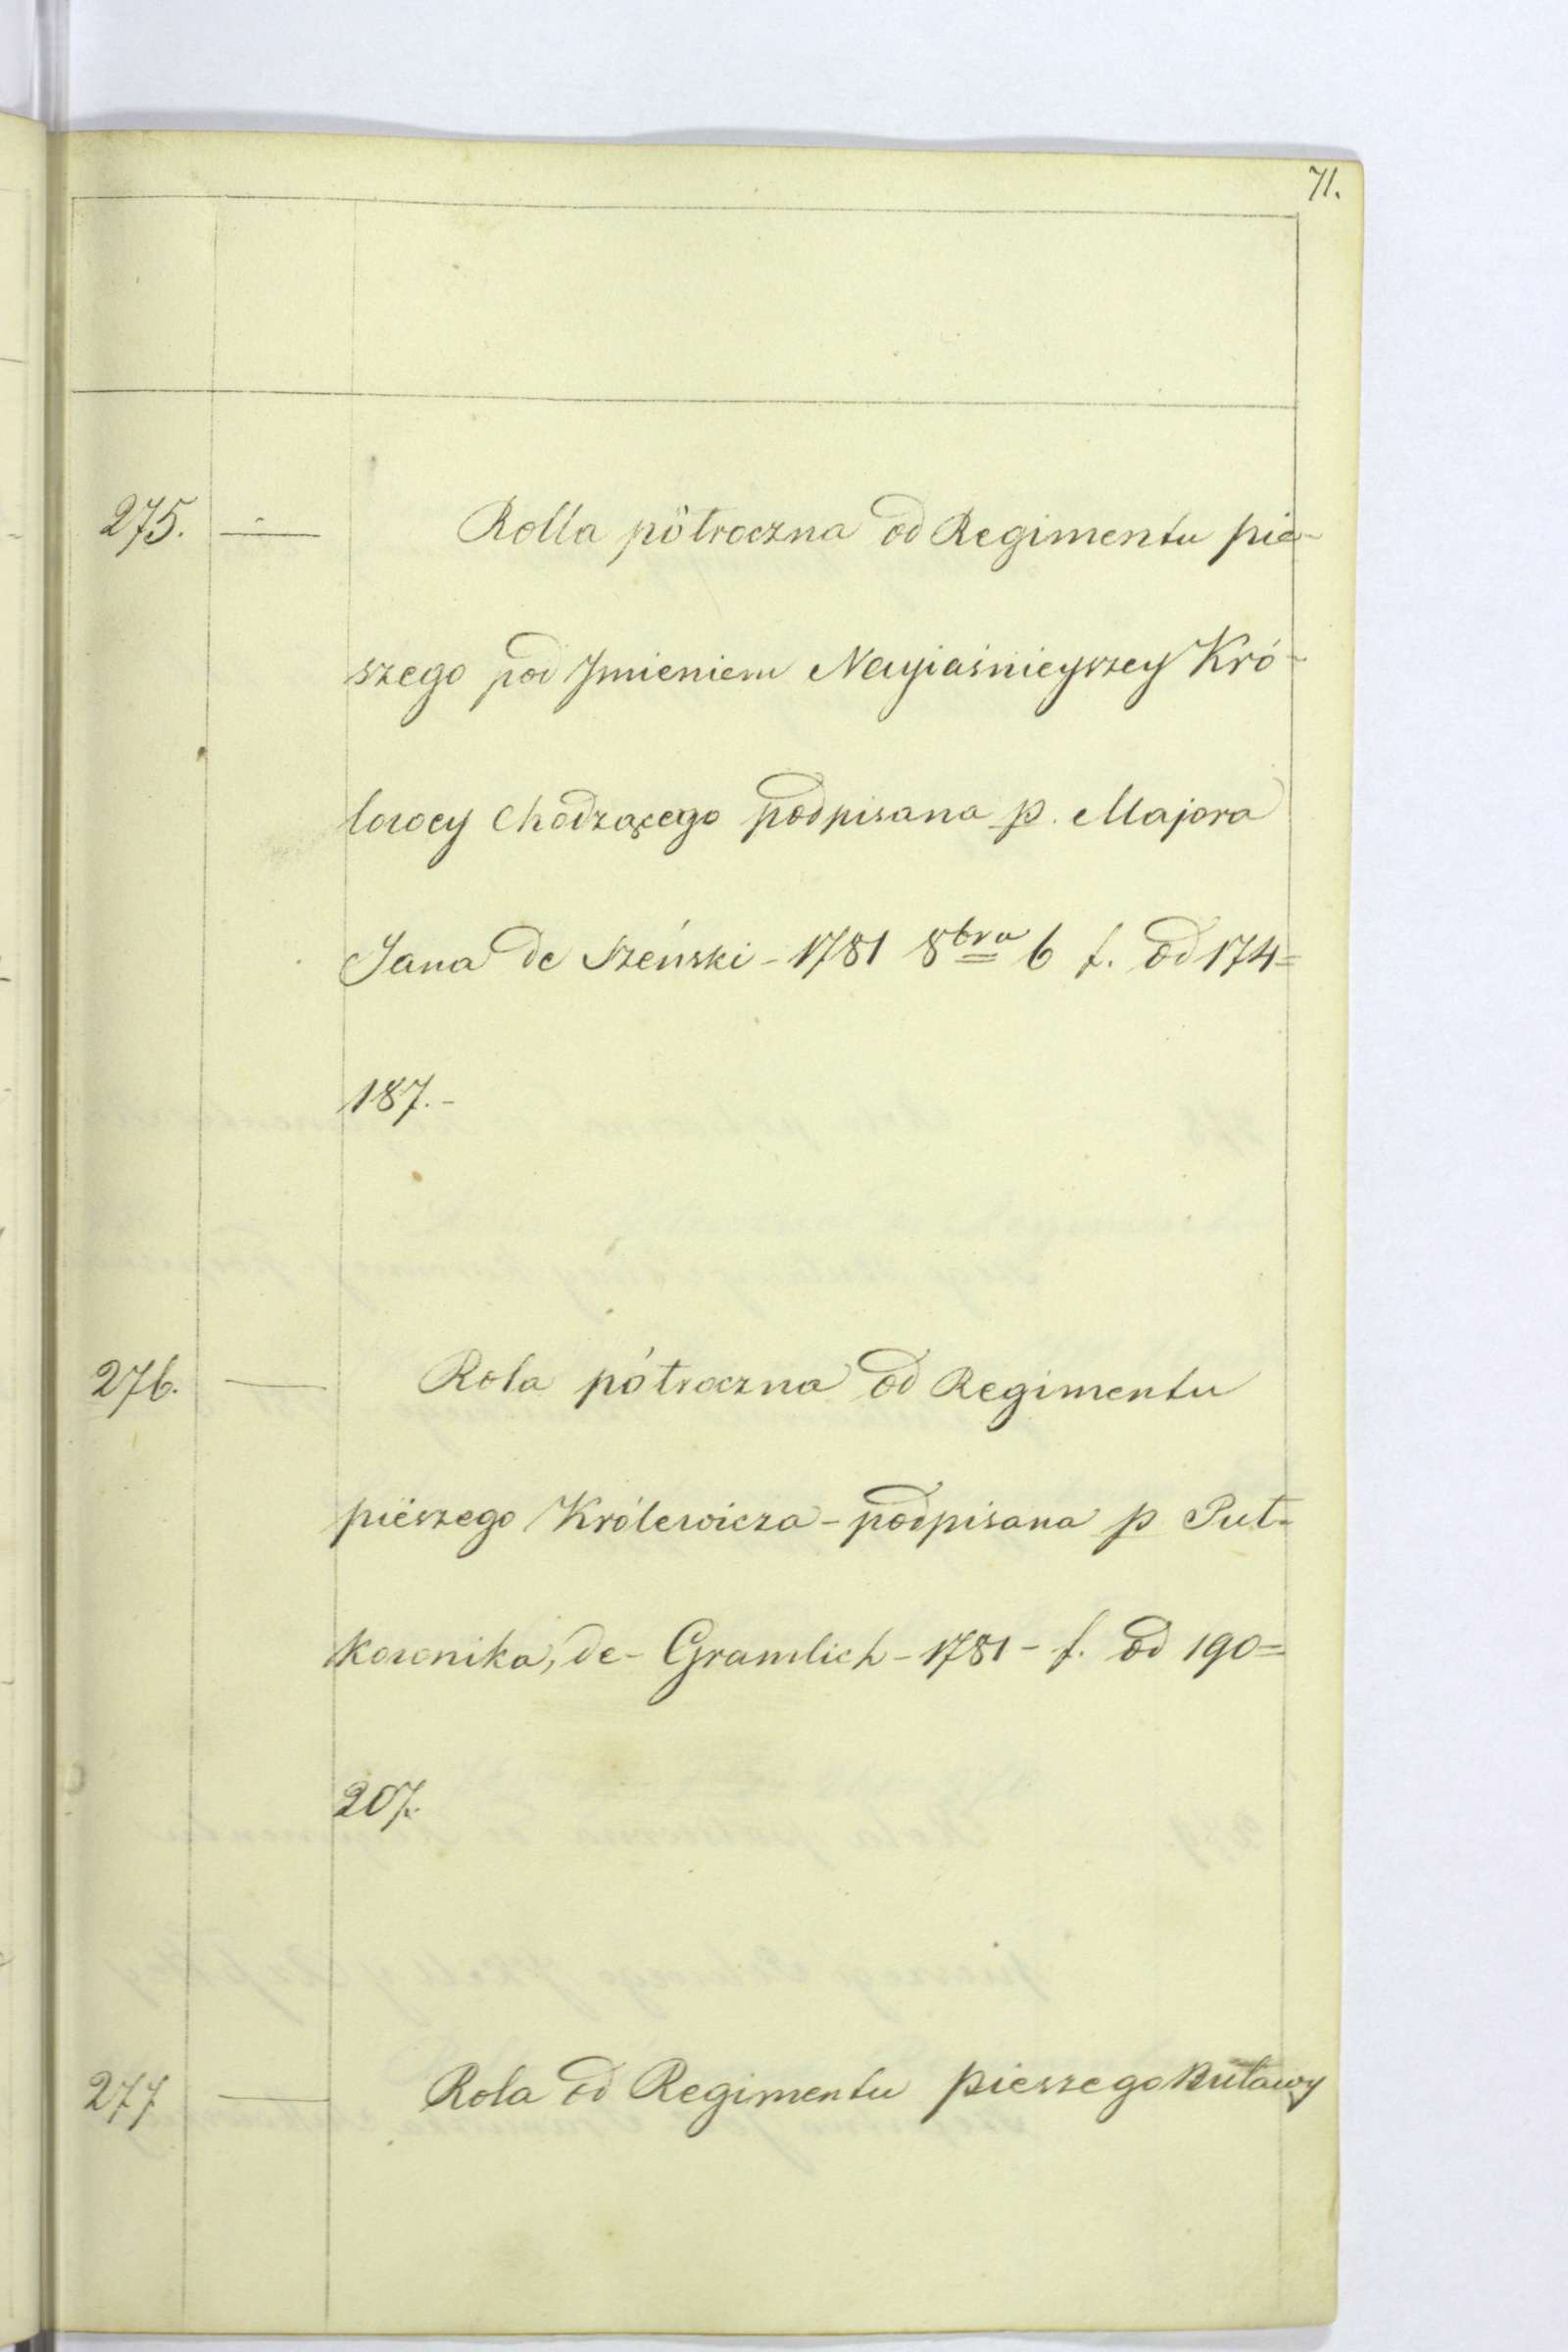 71.
275. — Rolla półroczna od Regimentu pie-
szego pod Jmieniem Nayiaśnieyszey Kró-
lowey Chodzącego podpisana p. Majora
Jana de Szeński - 1781 8bra 6 f. od 174=
187.-
276. — Rola półroczna od Regimentu
pieszego Królewicza - podpisana p Put=
kownika, de - Gramlich - 1781 - f. od 190=
207.
277 — Rola od Regimentu pieszego Buławy